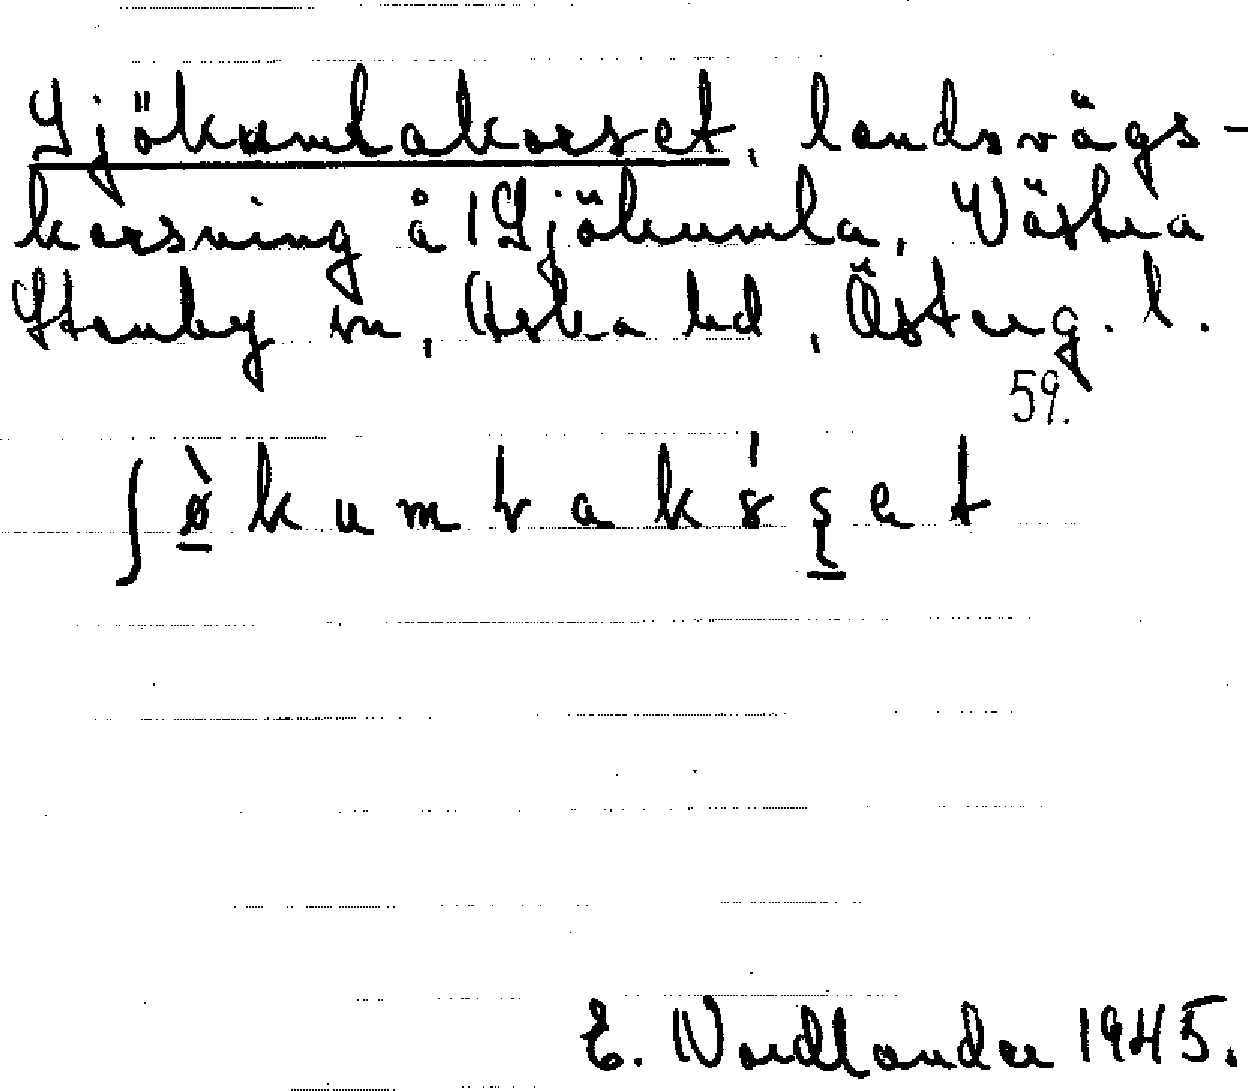 Sjökumlakorset, landsvägs-
korsning å 1 Sjökumla, Västra
Stenby sn, Aska hd, Österg. l.
59.
ʃø̀kumlak
E. Nordlander 1945.